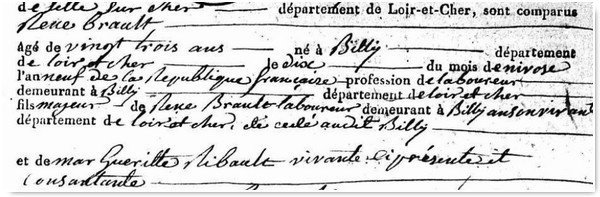 de Selle sur Cher département de Loir-et-Cher, sont comparus
Rene Brault
âgé de vingt trois ans né à Billy département
de loir et cher le dix du mois de nivose
l'an neuf de la Republique française profession de laboureur
demeurant à Billy département de loir et cher
fils majeur de Rene Brault laboureur demeurant à Billy a son vivant
département de loir et cher, decedé audit Billy
et de mar Gueritte Ribault vivante ci présente et
Consantante